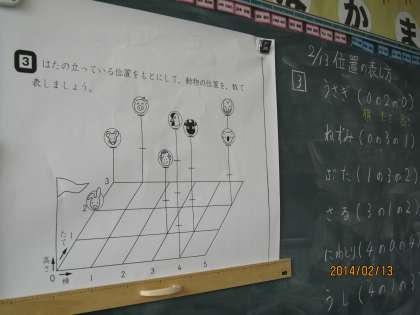 3 はたの立っている位置をもとにして、動物の位置を、数で
表しましょう。
3
2
1
たて
高さ
0 横 1 2 3 4 5
2/13 位置の表し方
3
うさぎ (0の2の0)
横 たて 高さ
ねずみ (0の3の1)
ぶた (1の3の2)
さる (3の1の2)
にわとり (4の0の4)
うし (4の1の3
2014/02/13
か ま